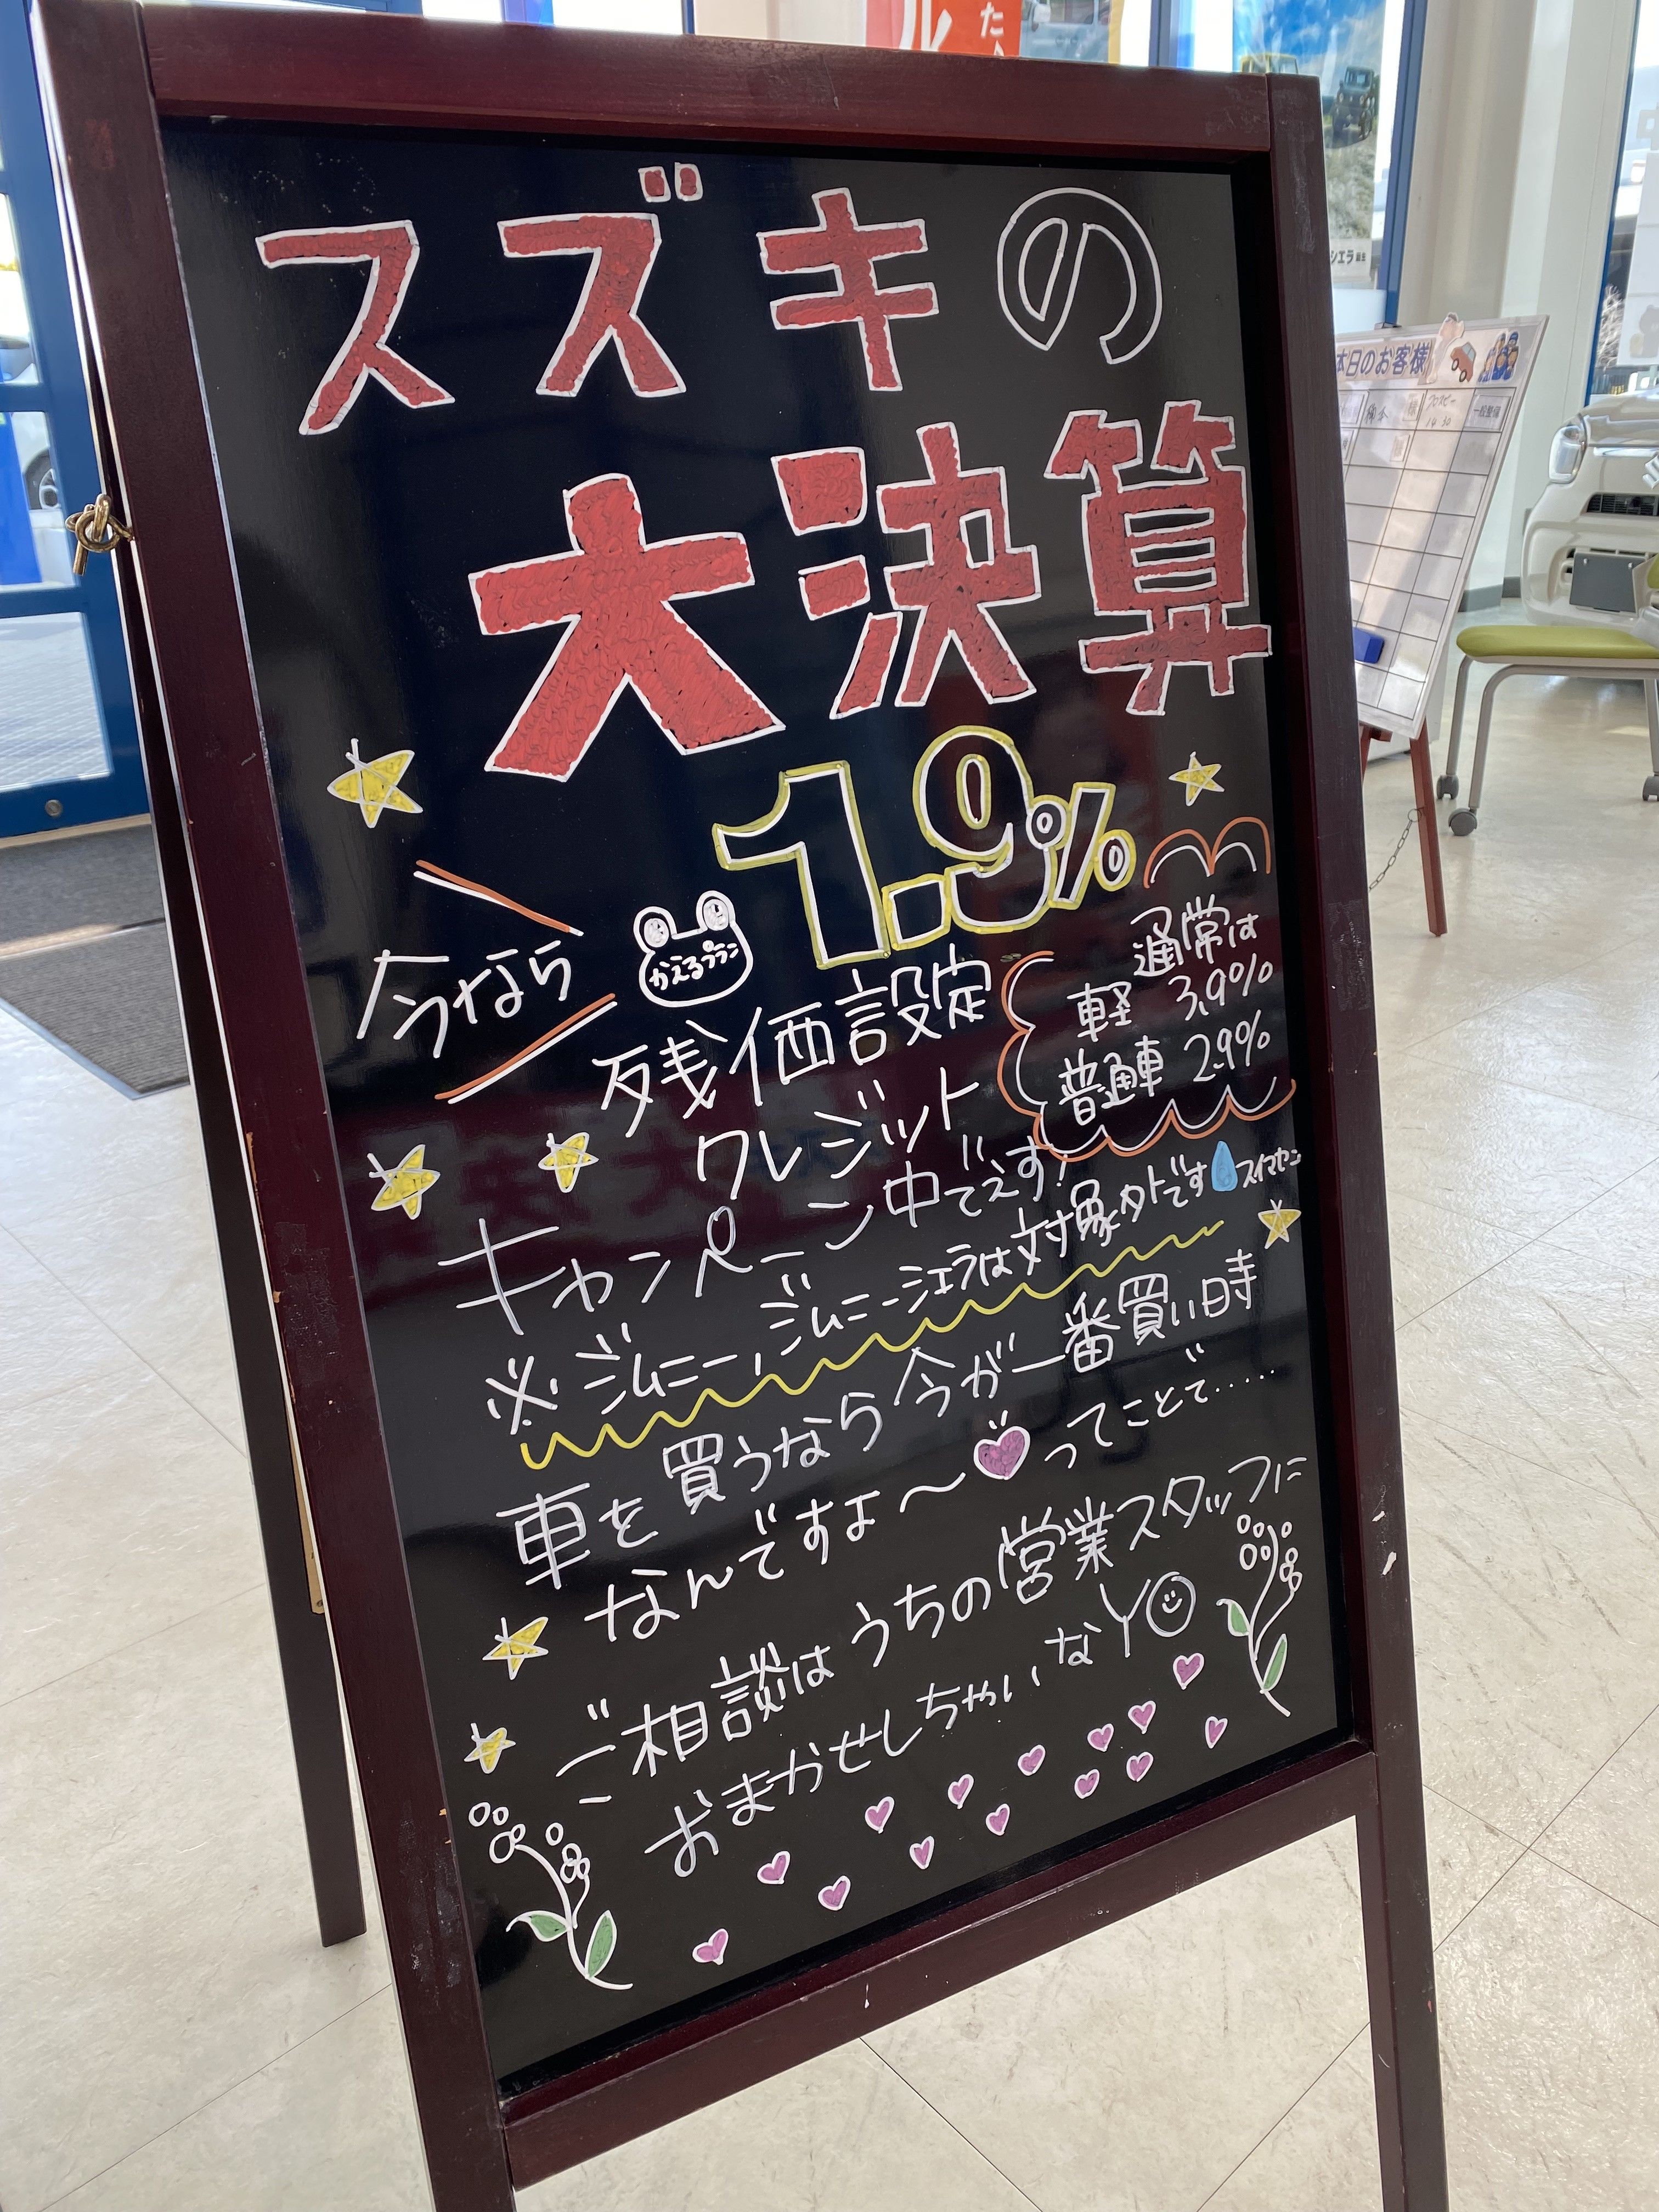 スズキの
大決算
1.9%
今なら
かえるプラン
残価設定
クレジット
通常は
軽 3.9%
普通車 2.9%
キャンペーン中でぇす!
※ジムニー、ジムニーシエラは対象外です スイマセン
車を買うなら今が一番買い時
なんですよ〜 ってことで.....
ご相談はうちの営業スタッフに
おまかせしちゃいなY
本日のお客様
一般整備
シエラ